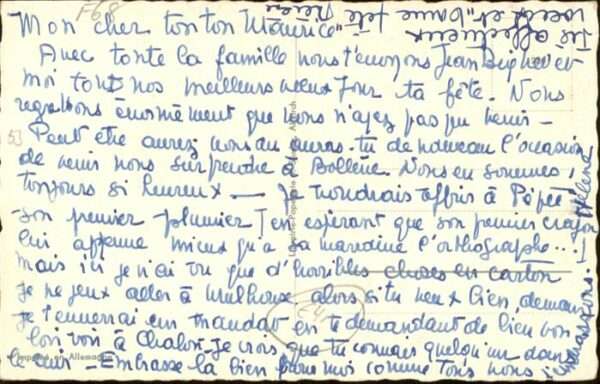 F68
Mon cher tonton Maurice
Avec toute la famille nous t'envoyons Jean et
moi tous nos meilleurs vœux pour ta fête. Nous
regrettons énormément que vous n'ayez pas pu venir -
53
Peut être aurez vous ou auras-tu de nouveau l'occasion
de venir nous surprendre à Bollène. Nous en sommes
toujours si heureux - Je voudrais offrir à Pépée
son premier plumier en espérant que son premier crayon
lui apprenne mieux qu'à sa marraine l'orthographe...!
Mais ici je n'ai vu que d'horribles choses en carton
je ne peux aller à Mulhouse alors si tu veux bien demain
je t'enverrai un mandat en te demandant de bien vou-
loir voir à Chalon. Je crois que tu connais quelqu'un dans
le cuir - Embrasse la bien pour moi comme tous nous
Imprimé en Allemagne
affectueux
vœux et "bonne fête
Hélène